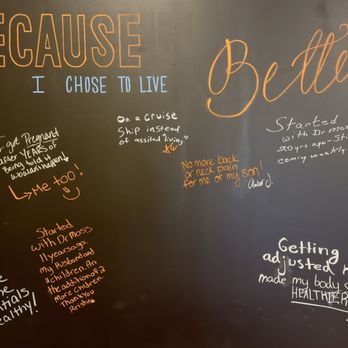 ECAUSE
I CHOSE TO LIVE
Bette
On a cruise
Ship instead
of assited living"
Started
with Dr mos
20 yrs ago-St
coming weekly
get Pregnant
after YEARS of
being told it
wouldn't happen!
→ Me too!
No more back
or neck pain
for me or my son!
Started
with Dr Moss
11 years ago.
my Husband and
2 children. An
the addition of 2
More Children.
Thank you
Getting
adjusted
made my body
HEALTHIER
entials
ealthy!